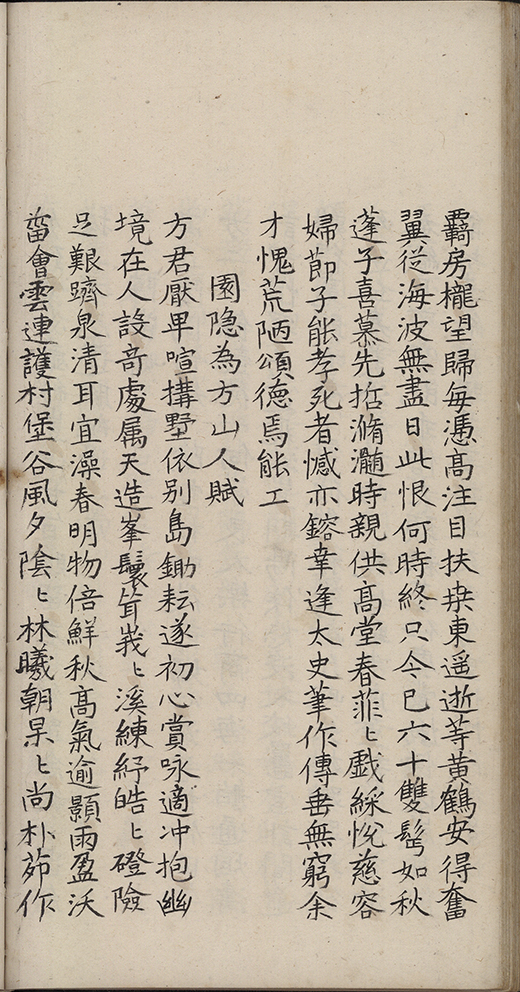 覊房櫳望歸每憑髙注目扶桒東遥逝等黃鶴安得奮
翼從海波無盡日此恨何時終只今已六十雙髩如秋
蓬子喜慕先哲滫瀡時親供髙堂春菲〻戯綵悅慈容
婦莭子能孝死者憾亦鎔幸逢太史筆作傳垂無窮余
才愧荒陋頌德焉能工
園隐為方山人賦
方君厭卑喧搆墅依别島鋤耘遂初心賞咏適冲抱幽
境在人設竒處属天造峯鬟聳峩〻溪練紓皓〻磴險
足艱躋泉清耳宜澡春明物倍鮮秋髙氣逾顥雨盈沃
菑會雲連護村堡谷風夕陰〻林曦朝杲〻尚朴茆作